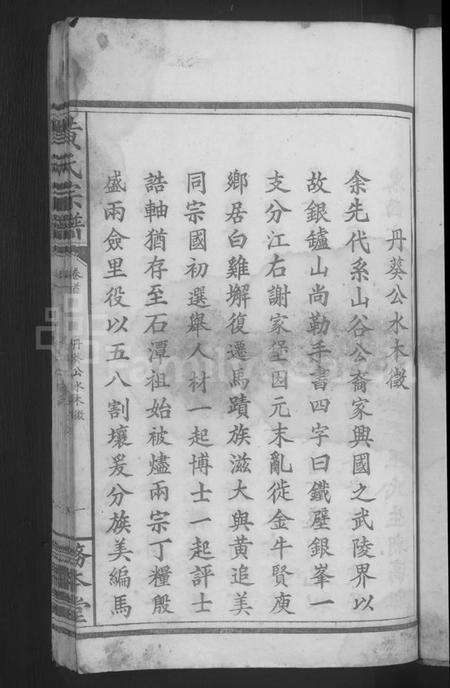 丹葵公水木徵
余先代系山谷公裔家興國之武陵界以
故銀鑪山尚勒手書四字曰鐵壁銀峯一
支分江右謝家堡因元末亂徙金牛賢庾
鄉居白雞墈復遷馬蹟族滋大與黃追美
同宗國初選舉人材一起博士一起評士
誥軸猶存至石潭祖始被燼兩宗丁糧殷
盛兩僉里役以五八割壤爰分族美編馬
黃氏宗譜
卷首
丹葵公水木徵
一
務本堂